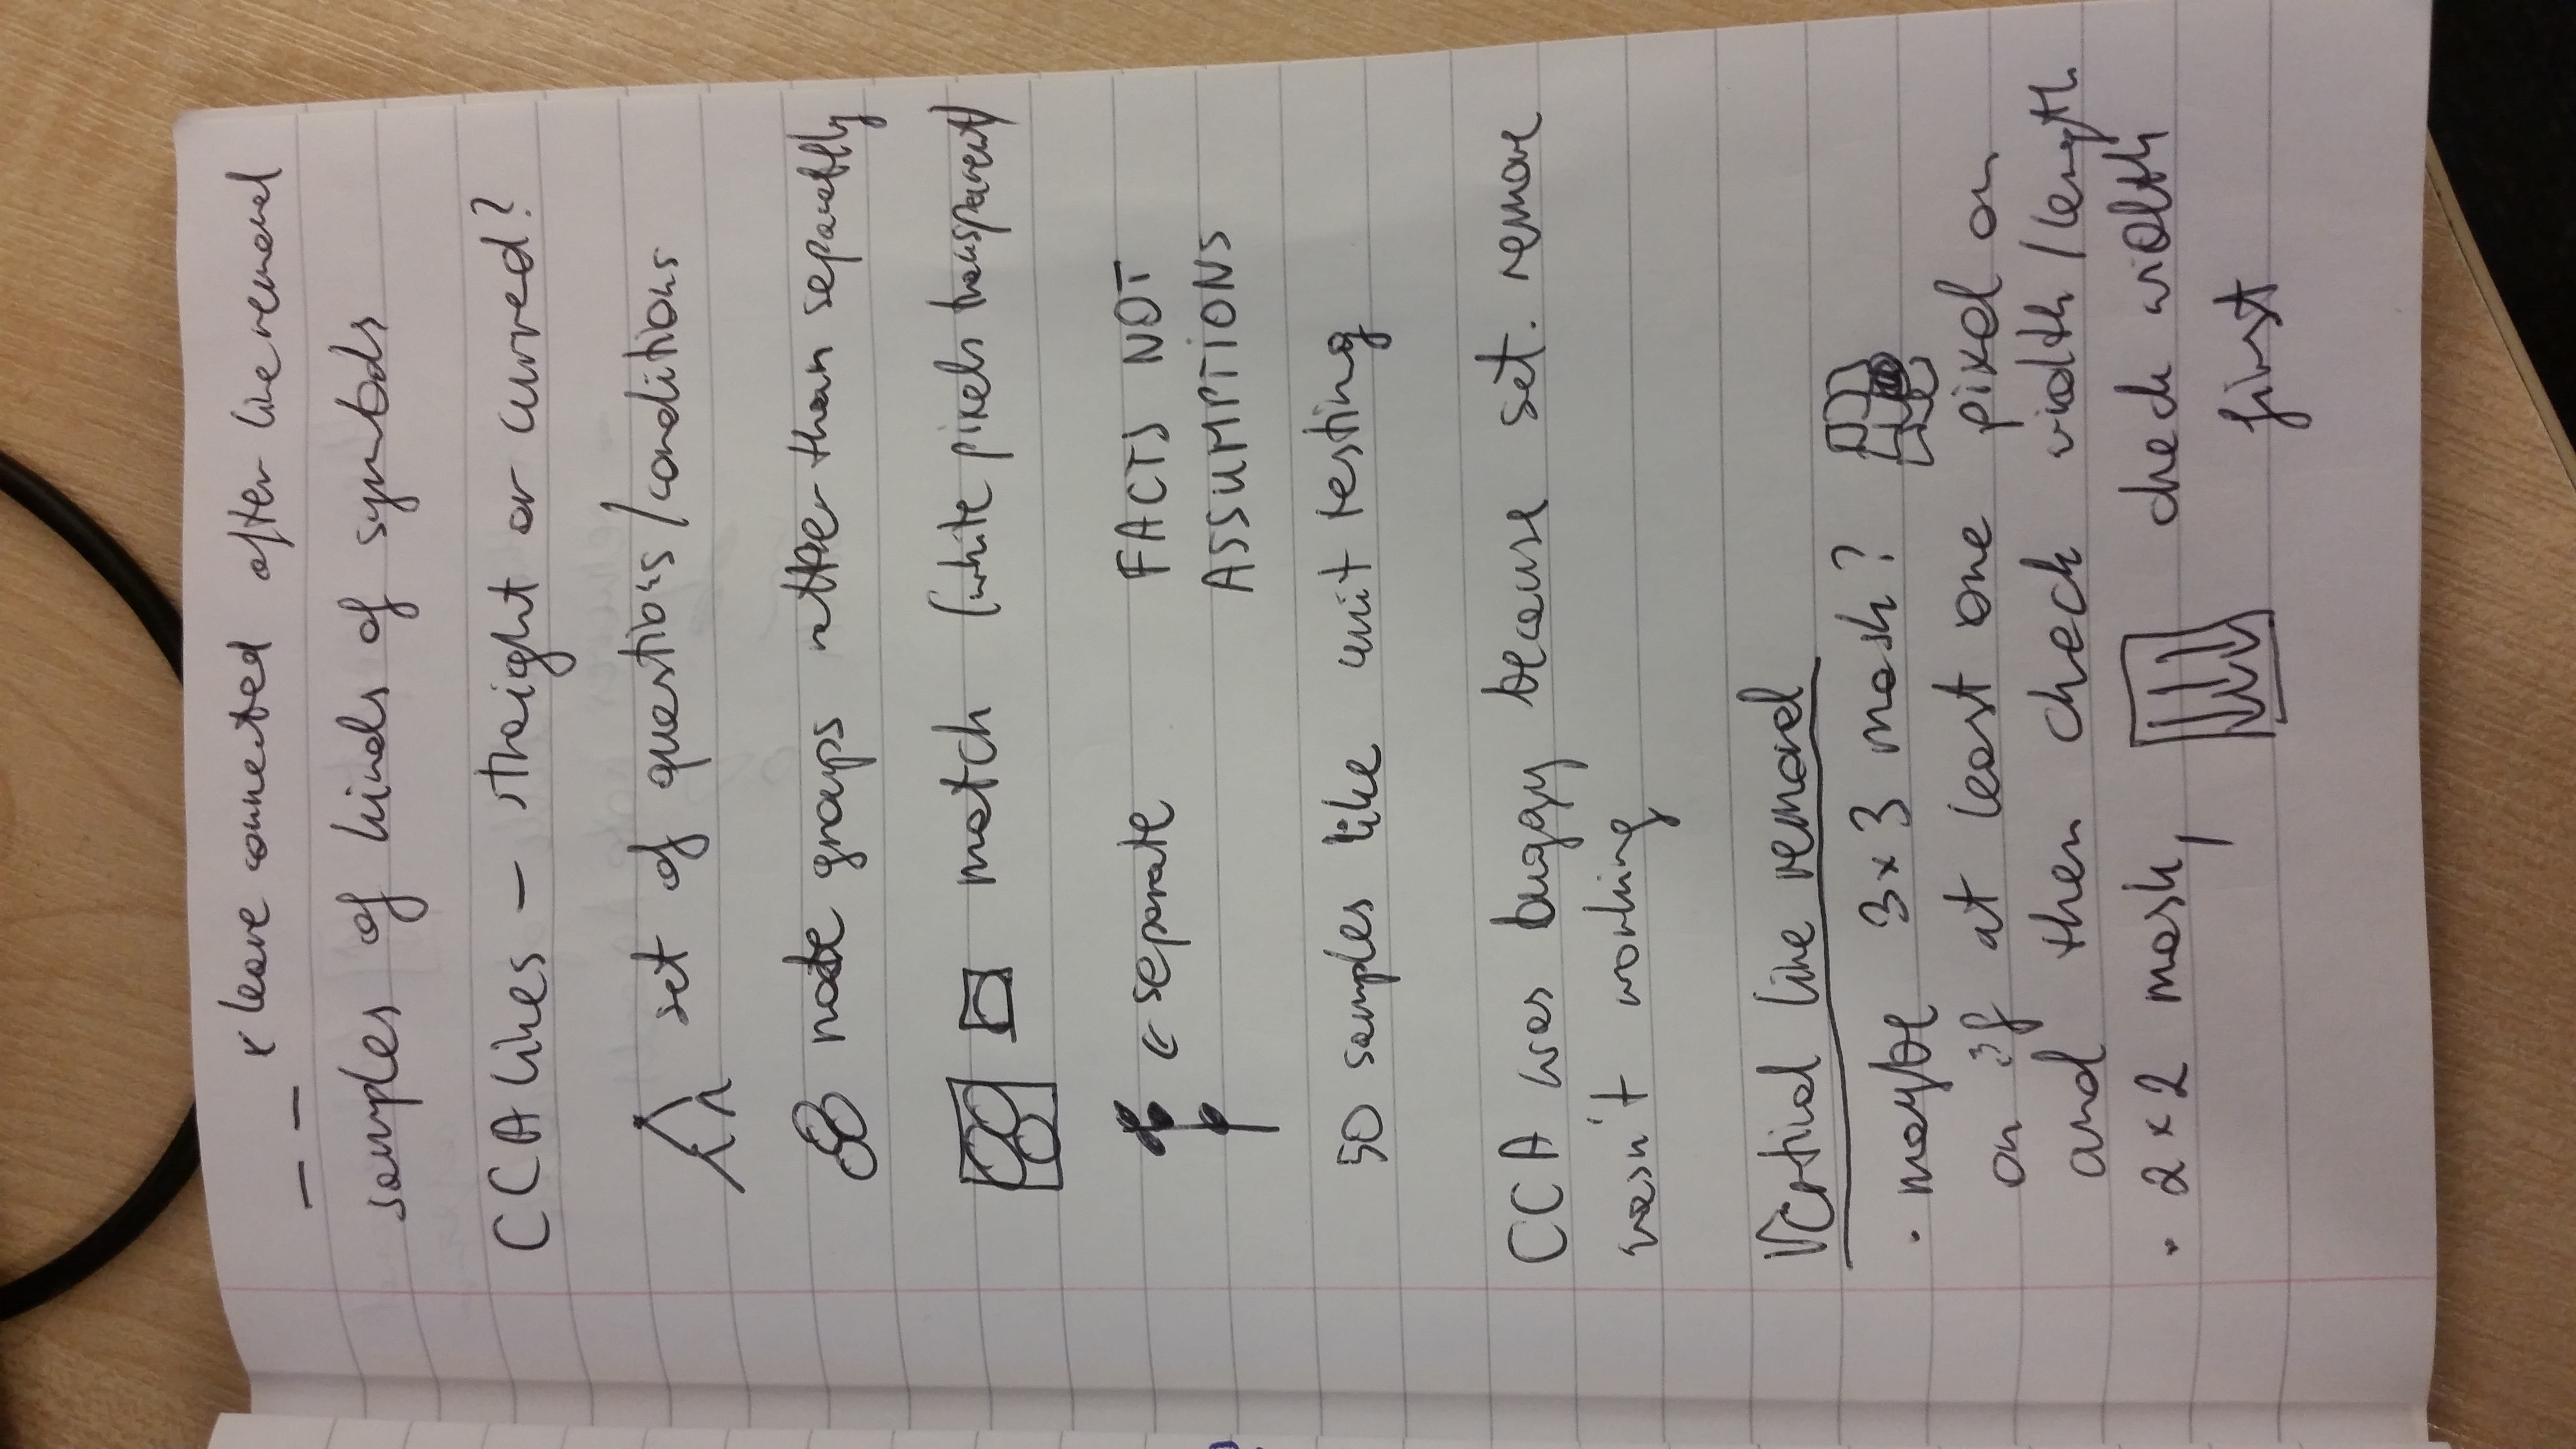 x leave connected after line removal
samples of kinds of symbols
CCA lines – straight or curved?
set of questions/conditions
note groups rather than separately
match (white pixels transparent)
← separate FACTS NOT
ASSUMPTIONS
50 samples like unit testing
CCA was buggy because set. remove
wasn't working
Vertical line removal
• maybe 3x3 mask?
on if at least one pixel on
and then check width/length
• 2x2 mask, check width
first